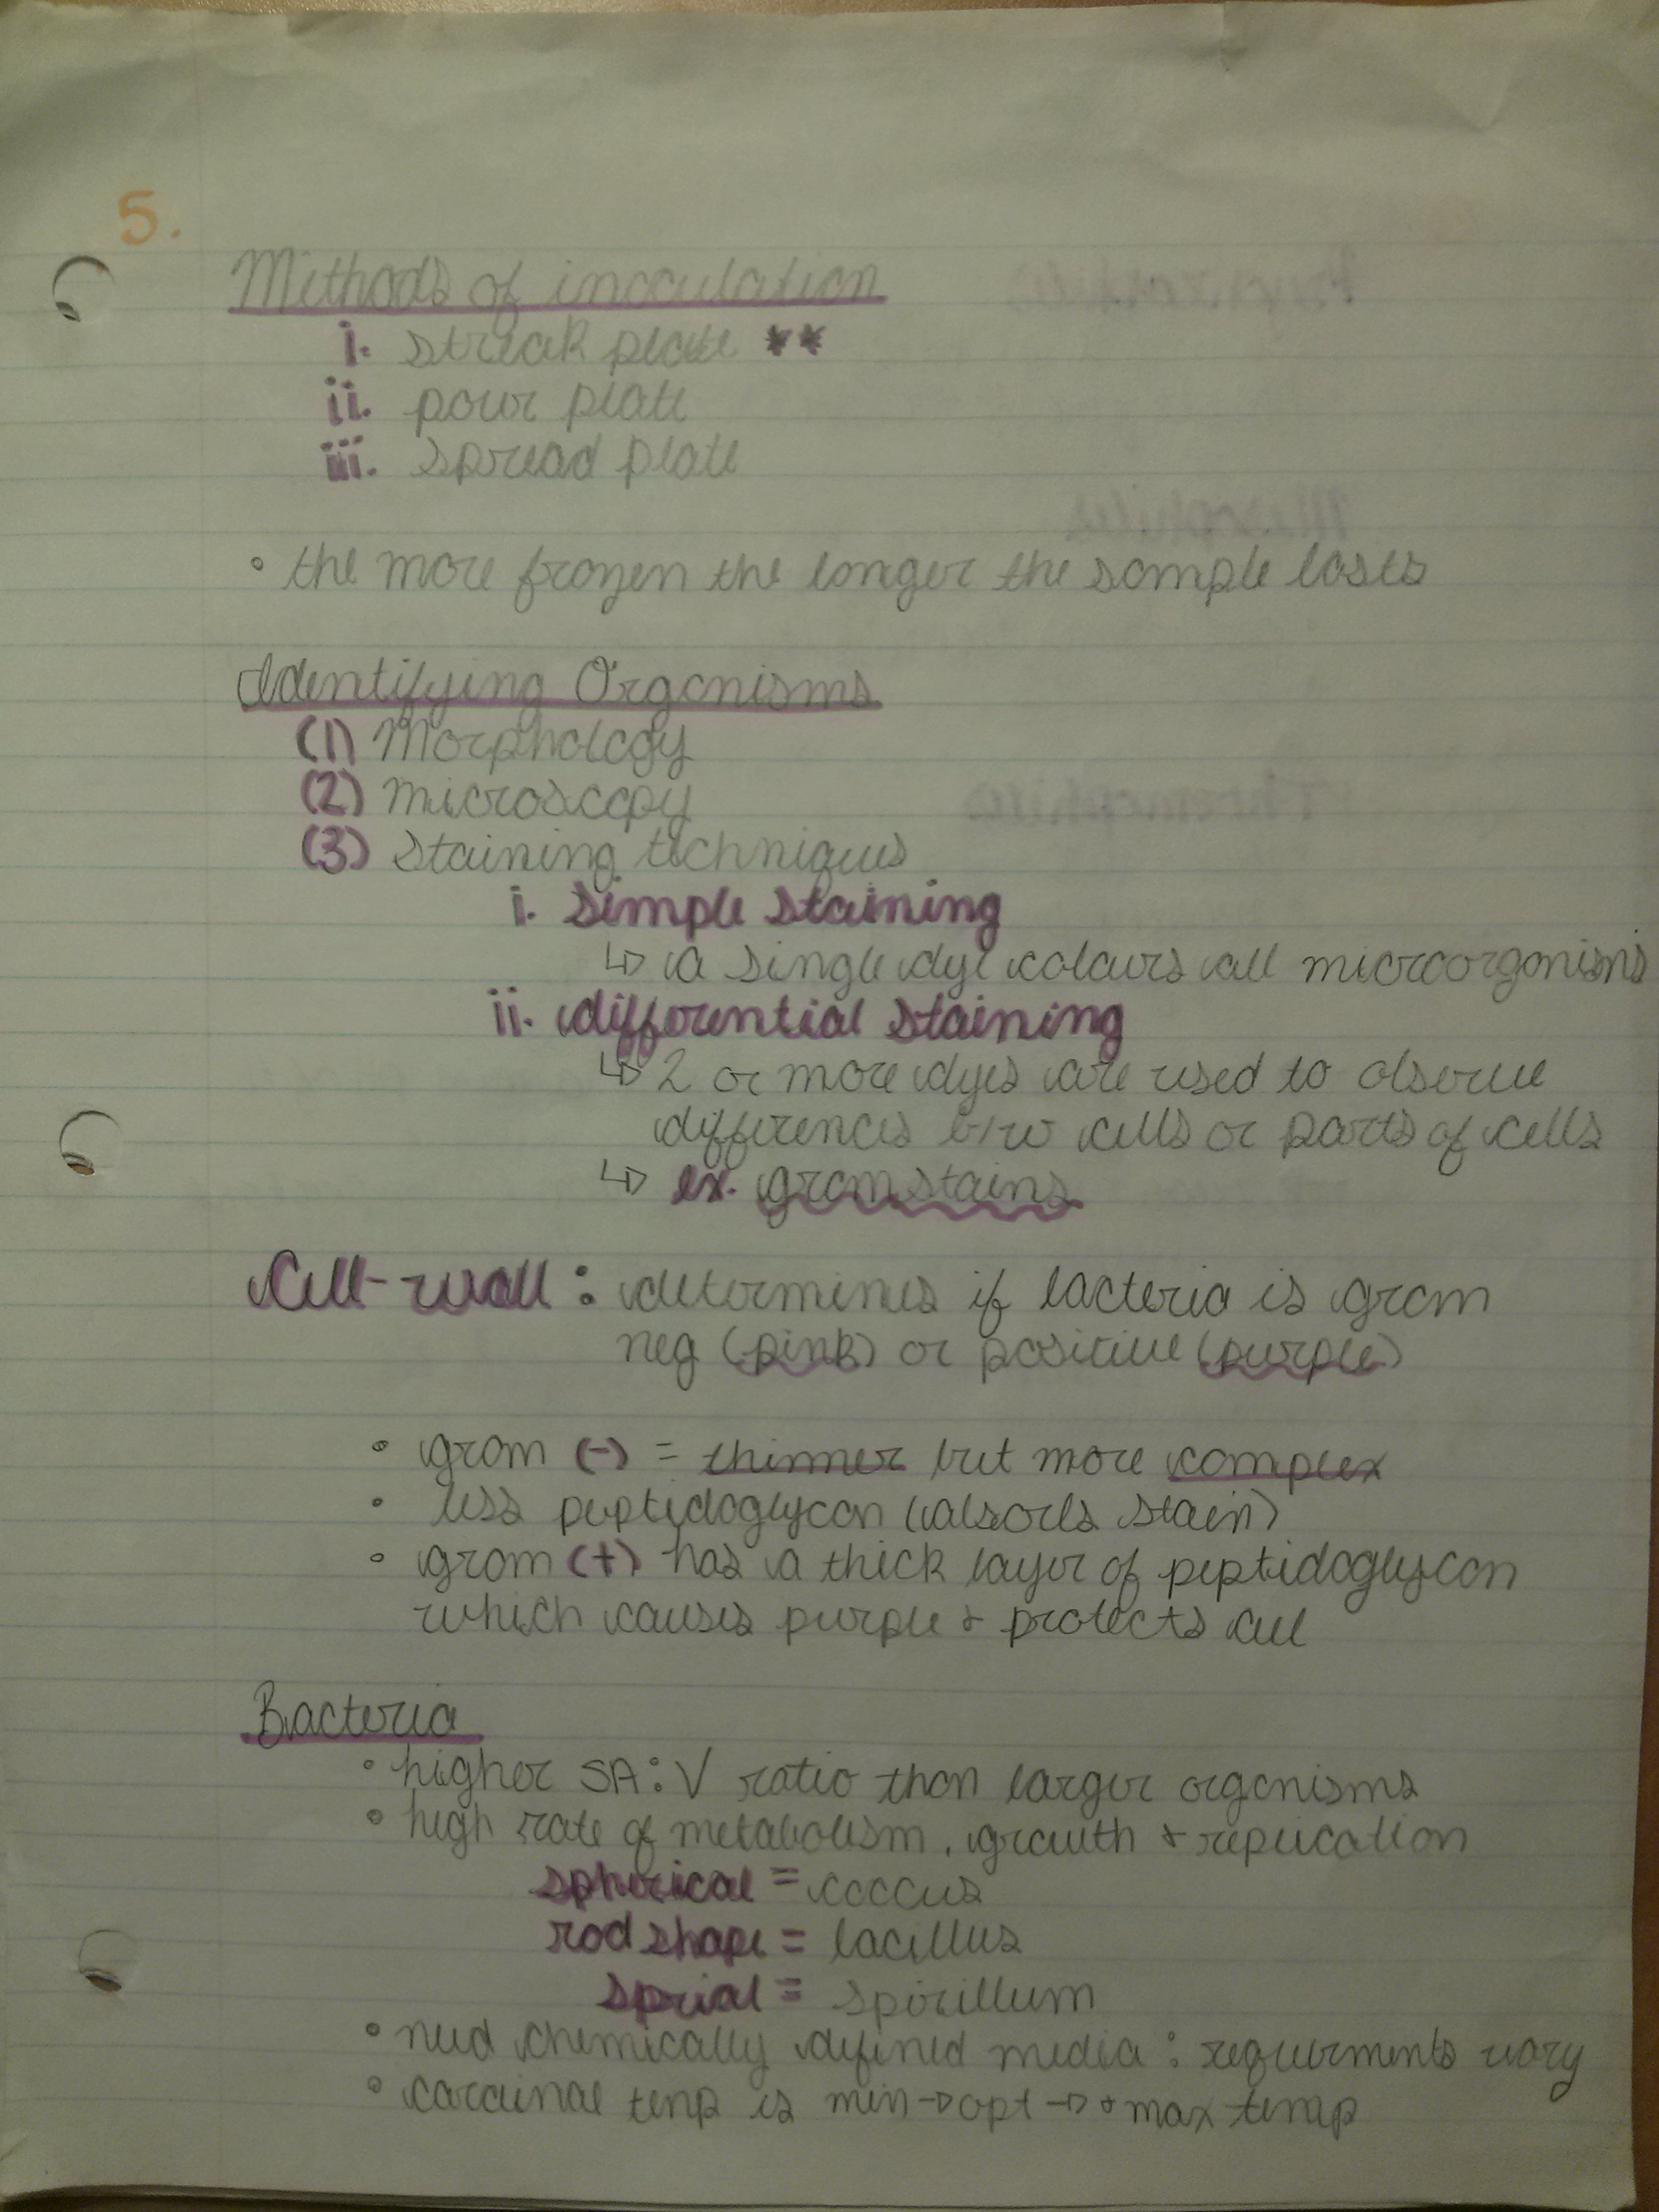 5.
Methods of inoculation
i. streak plate **
ii. pour plate
iii. spread plate
• the more frozen the longer the sample lasts
Identifying Organisms
(1) Morphology
(2) microscopy
(3) staining techniques
i. simple staining
↳ a single dye colours all microorganisms
ii. differential staining
↳ 2 or more dyes are used to observe
differences b/w cells or parts of cells
↳ ex. gram stains
Cell-wall: determines if bacteria is gram
neg (pink) or positive (purple)
• gram (-) = thinner but more complex
• less peptidoglycan (absorbs stain)
• gram (+) has a thick layer of peptidoglycan
which causes purple & protects cell
Bacteria
• higher SA:V ratio than larger organisms
• high rate of metabolism, growth & replication
spherical = coccus
rod shape = bacillus
sprial = spirillum
• need chemically defined media: requirments vary
• cardinal temp is min → opt → & max temp